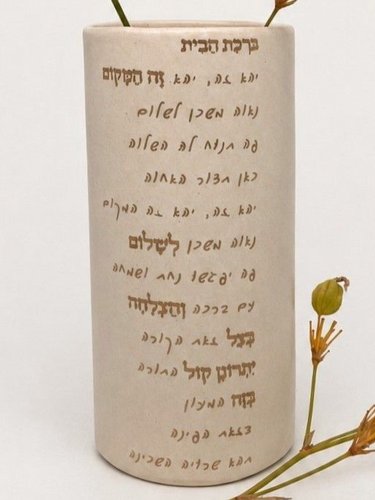 ברכת הבית
יהא זה, יהא זה המקום
נאוה משכן לשלום
פה תנוח לה השלוה
כאן תצור האחוה
יהא זה, יהא זה המקום
נאוה משכן לשלום
פה יפגשו נחת ושמחה
עם ברכה והצלחה
בצל זאת הקורה
יתרונן קול התורה
בזה המעון
בזאת הפינה
תהא שרויה השכינה